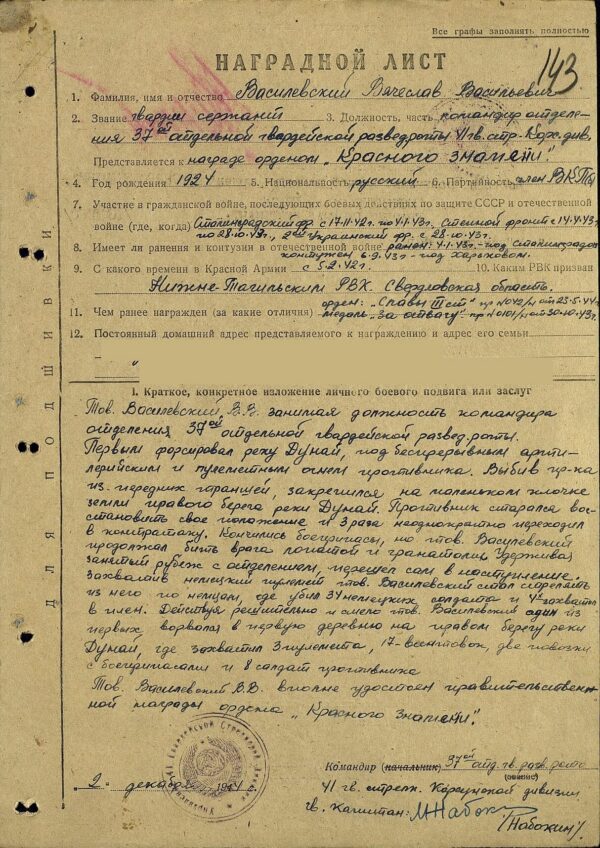 Все графы заполнять полностью
НАГРАДНОЙ ЛИСТ
143
1. Фамилия, имя и отчество Василевский Вячеслав Васильевич
2. Звание гвардии сержант 3. Должность, часть командир отделе-
ния 37ой отдельной гвардейской разведроты 41 гв. стр. Корс. див.
Представляется к награде орденом „Красного знамени".
4. Год рождения 1924 5. Национальность русский 6. Партийность член ВКП(б)
7. Участие в гражданской войне, последующих боевых действиях по защите СССР и отечественной
войне (где, когда) Сталинградский фр. с 17.11.42г. по 4.1.43г. Степной фронт с 14.4.43г.
по 28.10.43г., 2ой Украинский фр. с 28.10.43г.
8. Имеет ли ранения и контузии в отечественной войне ранен: 4.1.43г-под Сталинградом
контужен 6.9.43г-под Харьковом.
9. С какого времени в Красной Армии с 5.2.42г. 10. Каким РВК призван
Нижне-Тагильским РВК Свердловская область.
орден: „Славы IIIст" пр N042/н от 23.5.44г
11. Чем ранее награжден (за какие отличия) медаль „За отвагу" пр N0101/н от 30.10.43г.
12. Постоянный домашний адрес представляемого к награждению и адрес его семьи
I. Краткое, конкретное изложение личного боевого подвига или заслуг
Тов. Василевский В.В. занимая должность командира
отделения 37ой отдельной гвардейской развед.роты.
Первым форсировал реку Дунай, под беспрерывным арти-
лерийским и пулеметным огнем противника. Выбив пр-ка
из передних траншей, закрепился на маленьком клочке
земли правого берега реки Дунай. Противник старался вос-
становить свое положение и 3 раза неоднократно переходил
в контратаку. Кончились боеприпасы, но тов. Василевский
продолжал бить врага лопатой и гранатами. Удерживая
занятый рубеж с отделением, перешел сам в наступление.
Захватив немецкий пулемет тов. Василевский стал стрелять
из него по немцам, где убил 34 немецких солдата и 4х захватил
в плен. Действуя решительно и смело тов. Василевский один из
первых, ворвался в первую деревню на правом берегу реки
Дунай, где захватил 3 пулемета, 17-винтовок, две повозки
с боеприпасами и 8 солдат противника
Тов. Василевский В.В. вполне удостоен правительствен-
ной награды ордена „Красного Знамени".
Командир (начальник) 37ой отд. гв. разв. роты
2 декабря 1944
41 гв. стрелк. Корсунской дивизии
гв. Капитан: Набок
/Набокин/
ДЛЯ ПОДШИВКИ